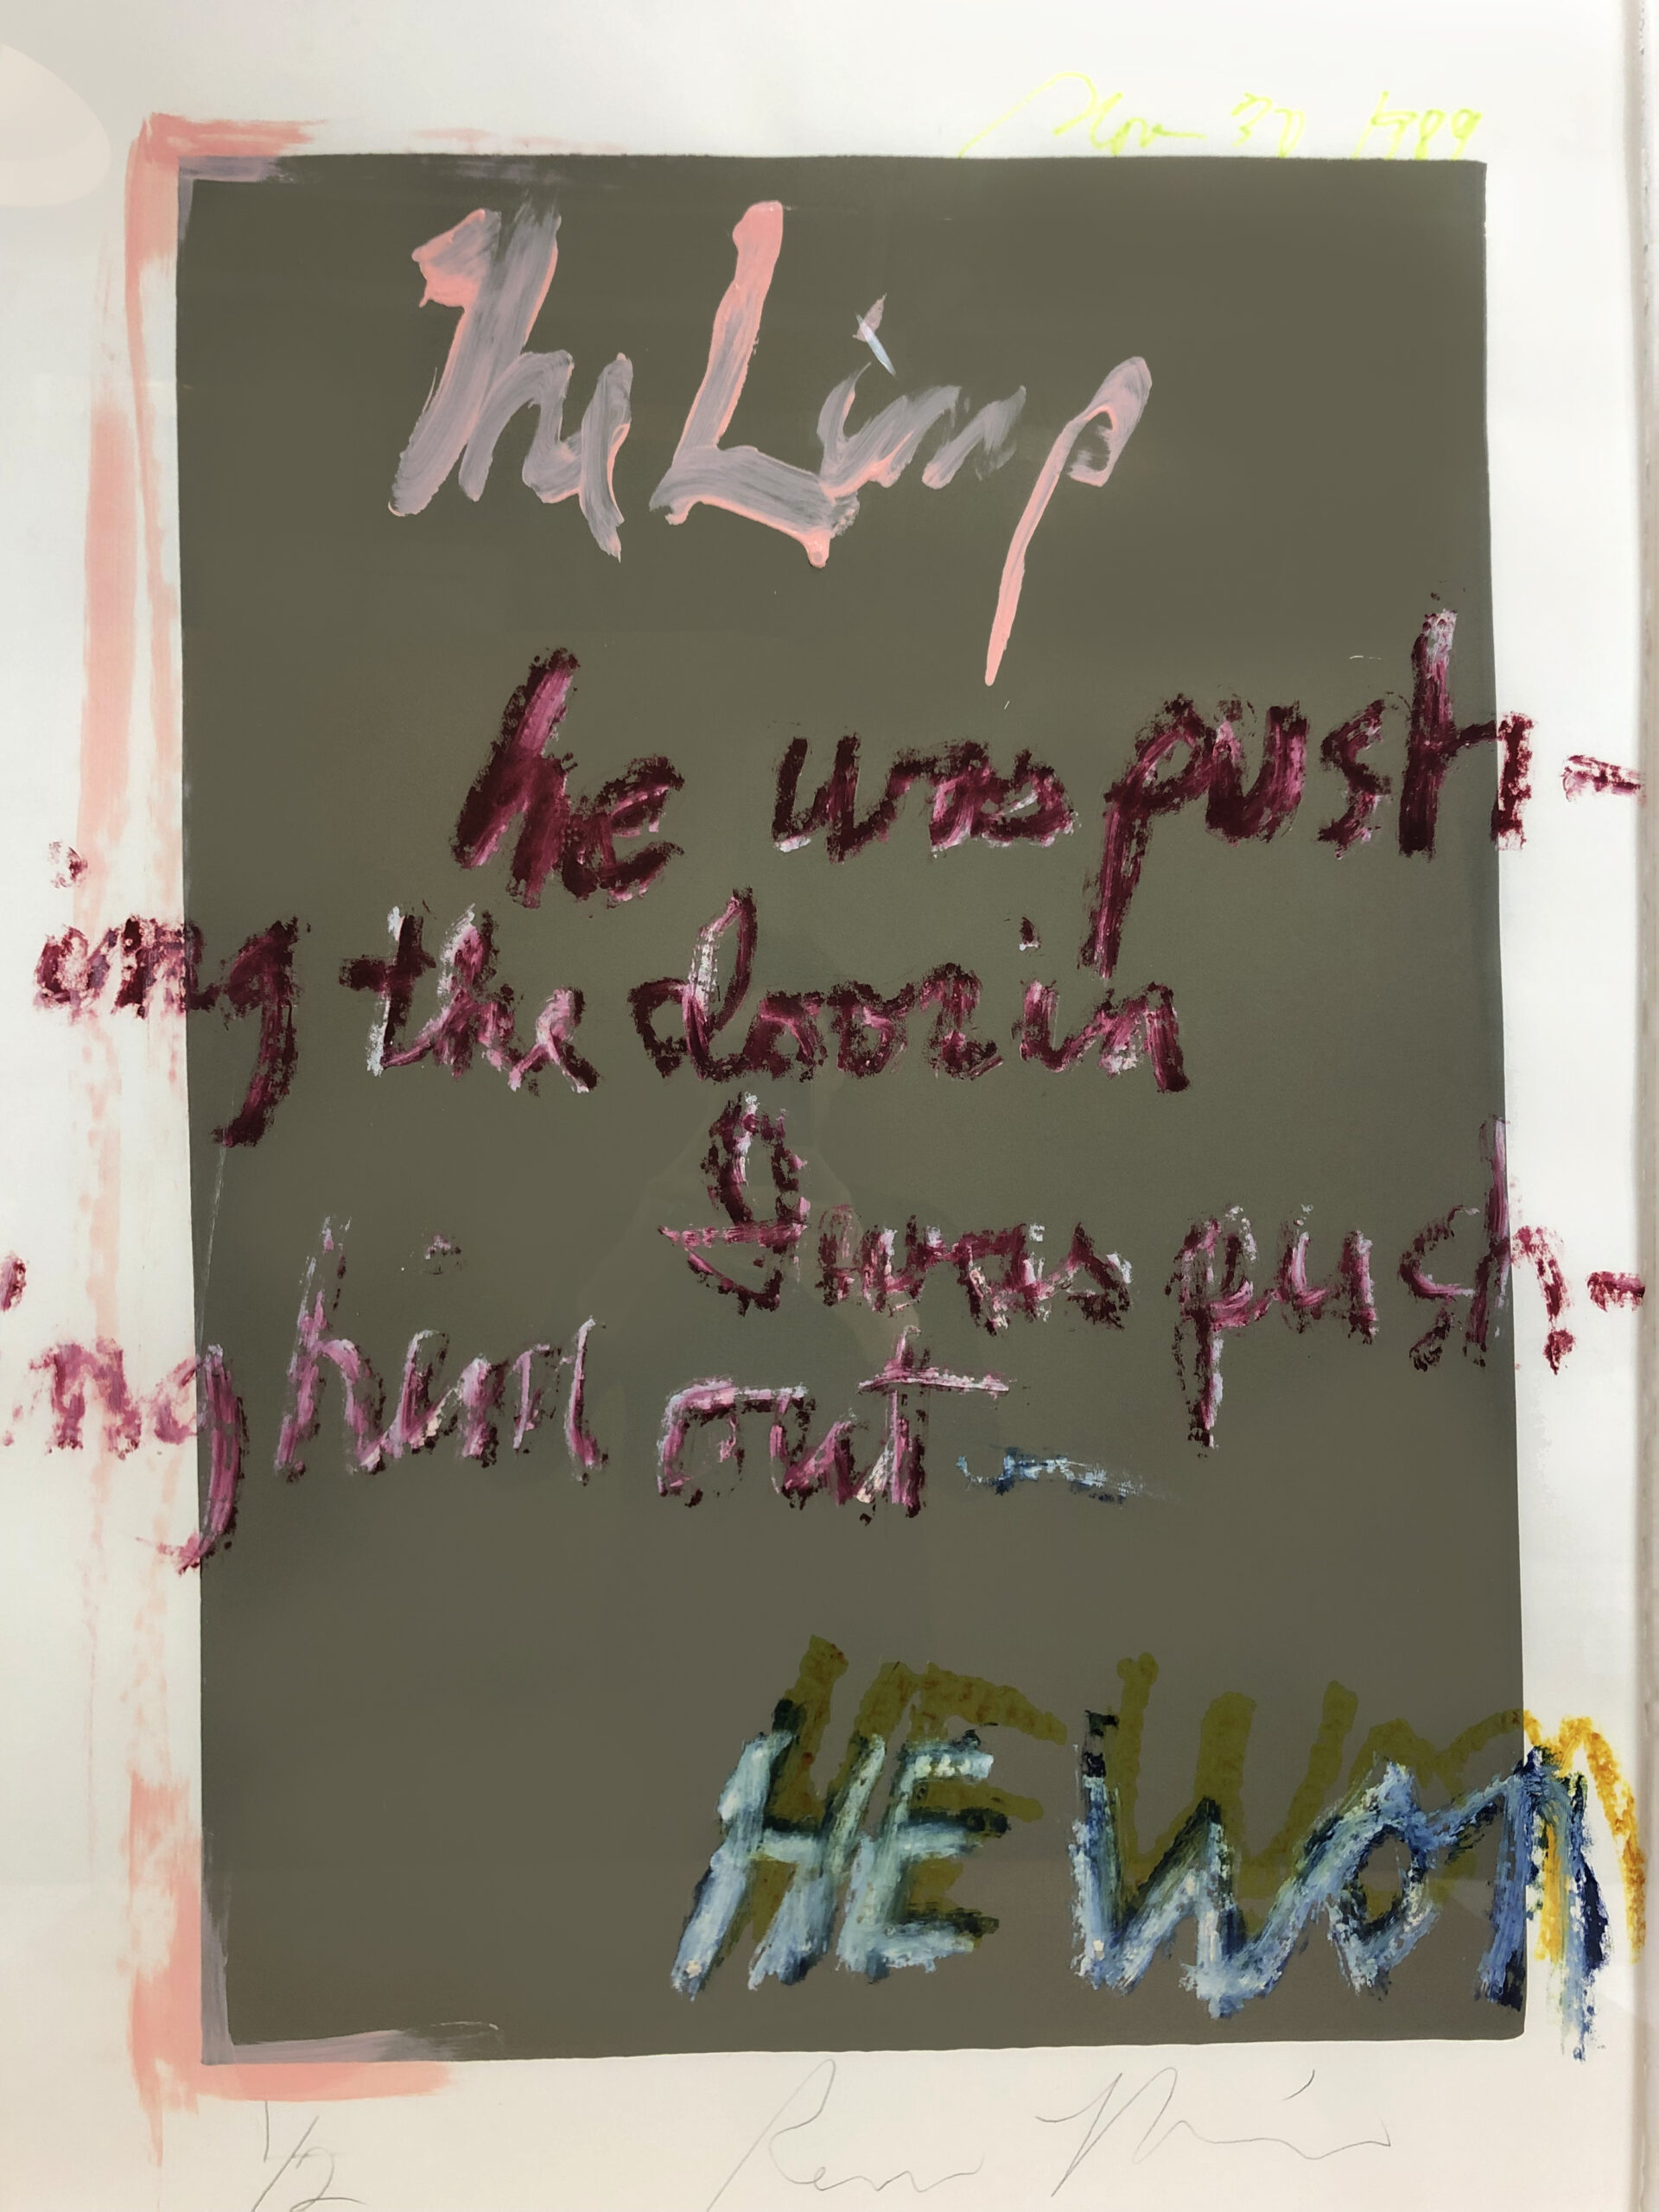 Nov 30 1989
The Limp
he was push-
ing the door in
I was push-
ing him out –
HE WON
1/2